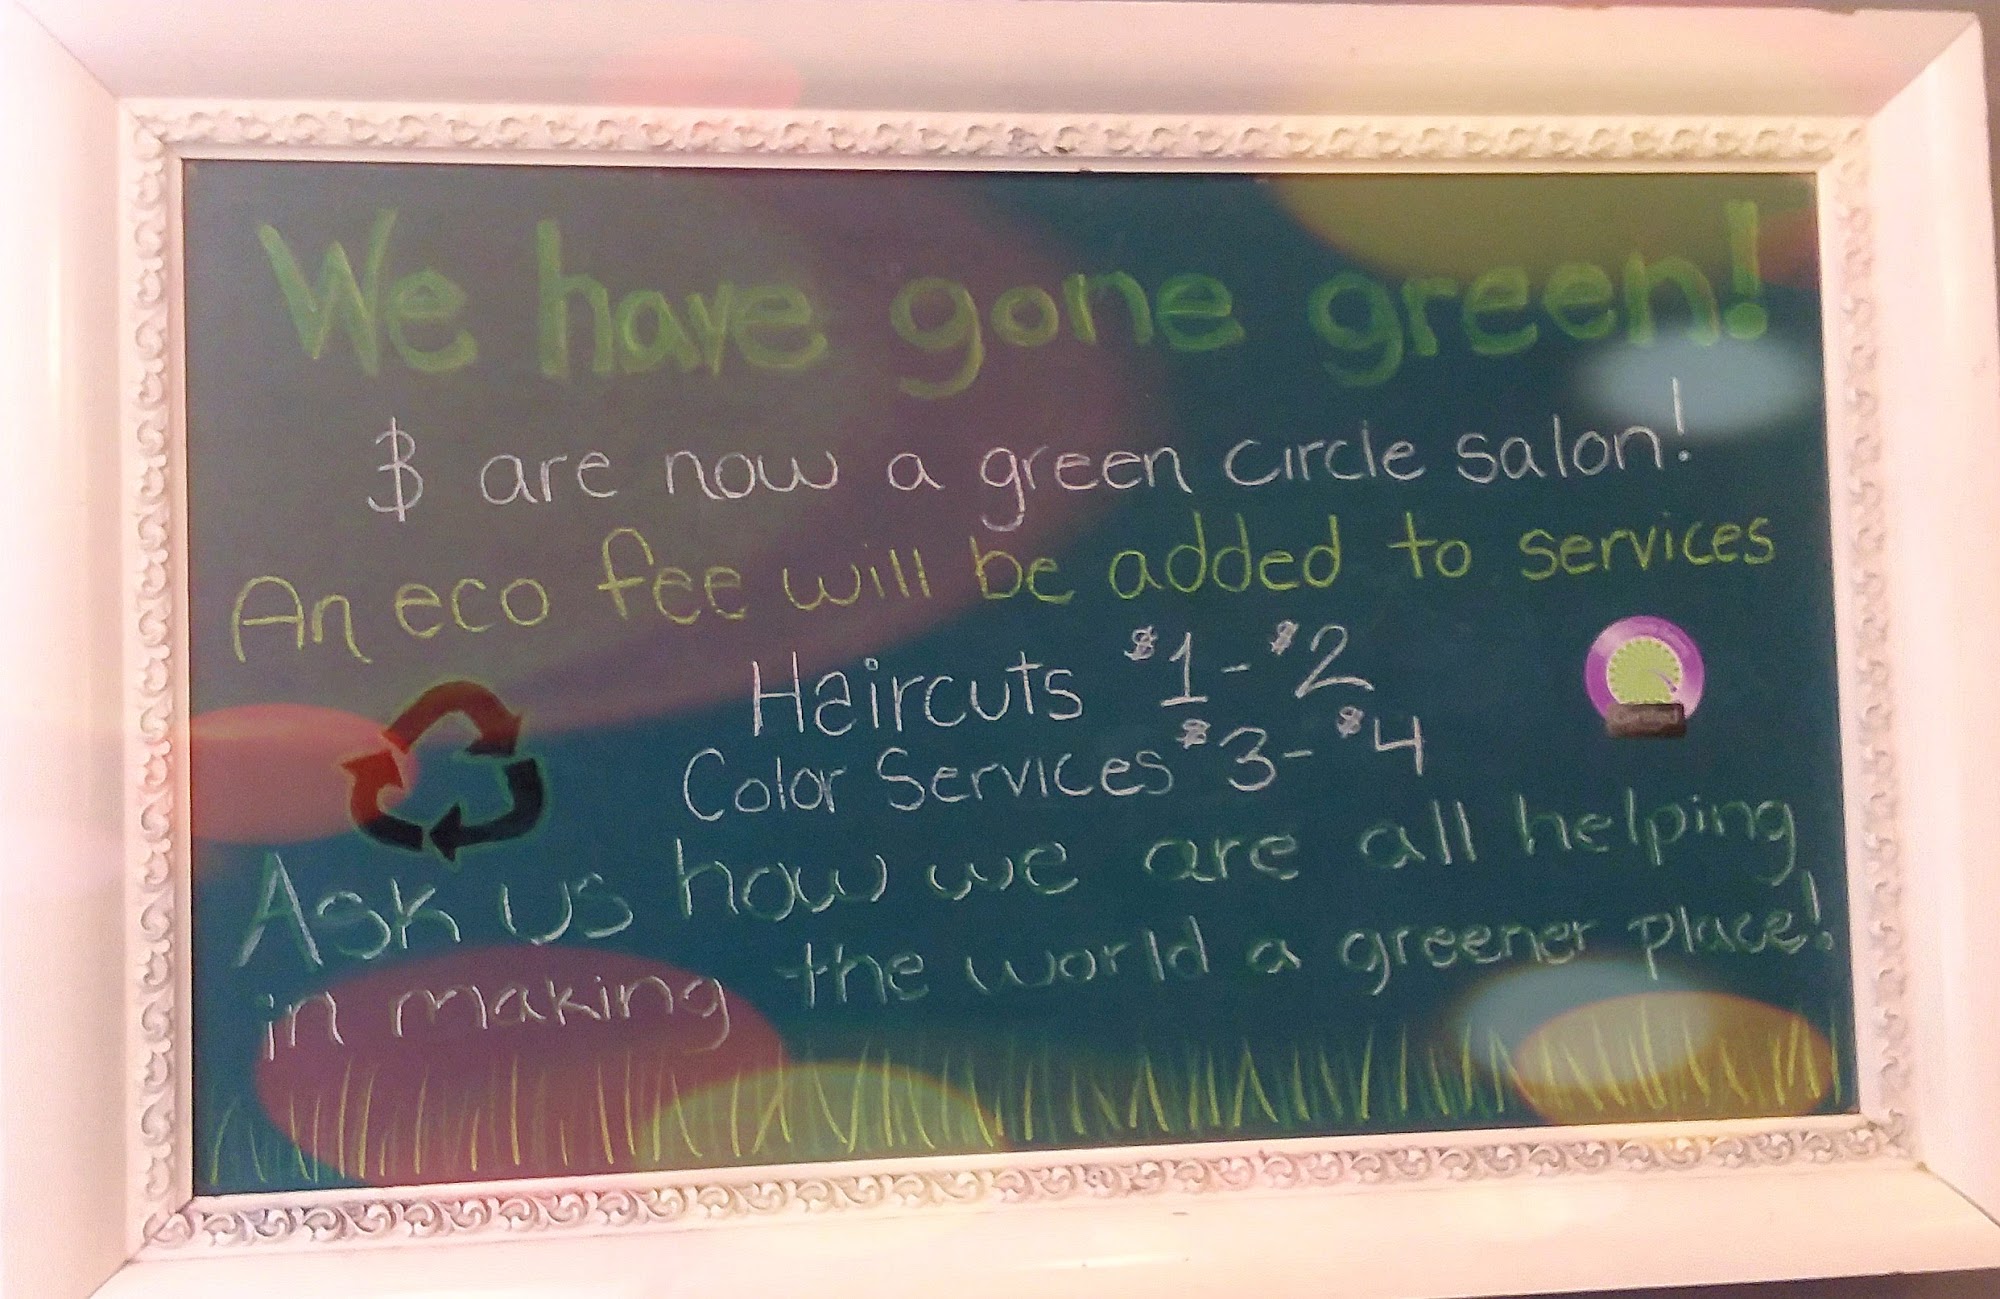 We have gone green!
$ are now a green circle salon!
An eco fee will be added to services
Haircuts $1-$2
Color Services $3-$4
Ask us how we are all helping
in making the world a greener place!
Certified